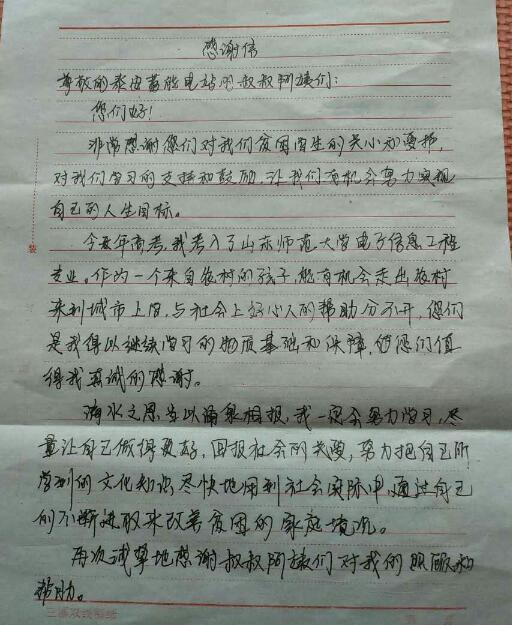 感谢信
尊敬的泰安蓄能电站的叔叔阿姨们：
您们好！
非常感谢您们对我们贫困学生的关心和爱护，
对我们学习的支持和鼓励，让我们有机会努力实现
自己的人生目标。
今年高考，我考入了山东师范大学电子信息工程
专业。作为一个来自农村的孩子，能有机会走出农村
来到城市上学，与社会上好心人的帮助分不开，您们
是我得以继续学习的物质基础和保障，您们值
得我真诚的感谢。
滴水之恩，当以涌泉相报，我一定会努力学习，尽
量让自己做得更好，回报社会的关爱，努力把自己所
学到的文化知识尽快地用到社会实际中，通过自己
的不断进取来改善贫困的家庭境况。
再次诚挚地感谢叔叔阿姨们对我的照顾和
帮助。
装